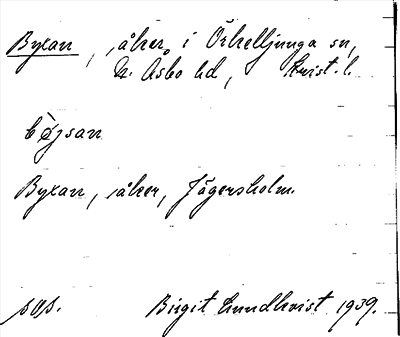 Byxan, åker i Örkelljunga sn,
N. Åsbo hd, Krist. l.
bỳsan
Byxan, åker, Jägersholm.
sos.
Birgit Lundkvist 1939.